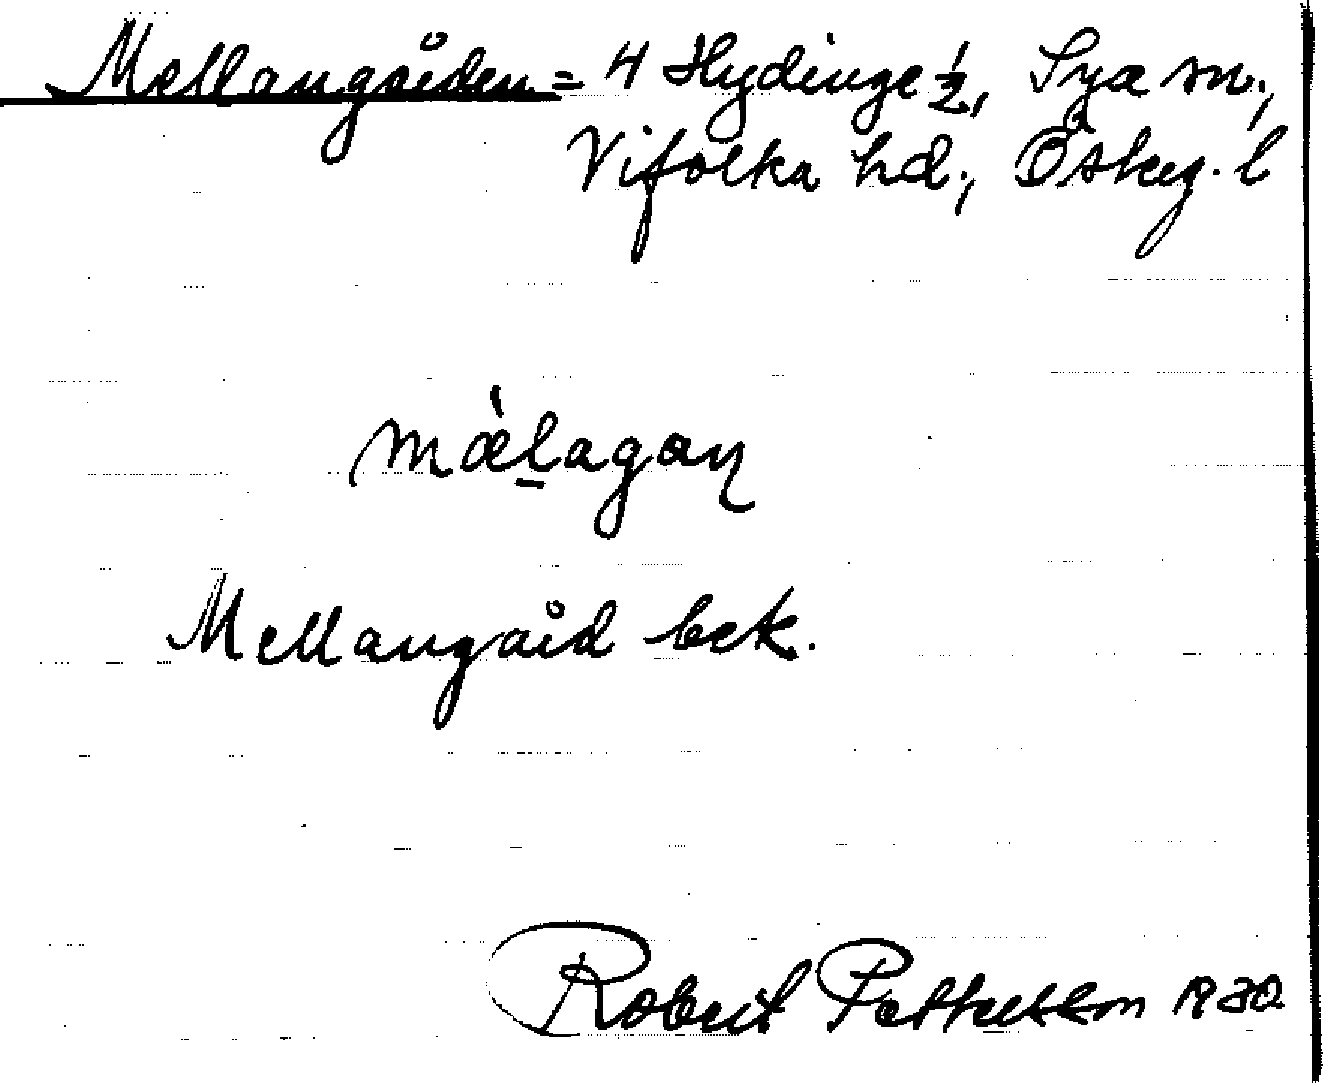 Mellangården = 4 Hydinge ½, Sya sn.,
Vifolka hd., Östkg. l
mæ̀lagaɳ
Mellangård bek.
Robert Pettersson 1930